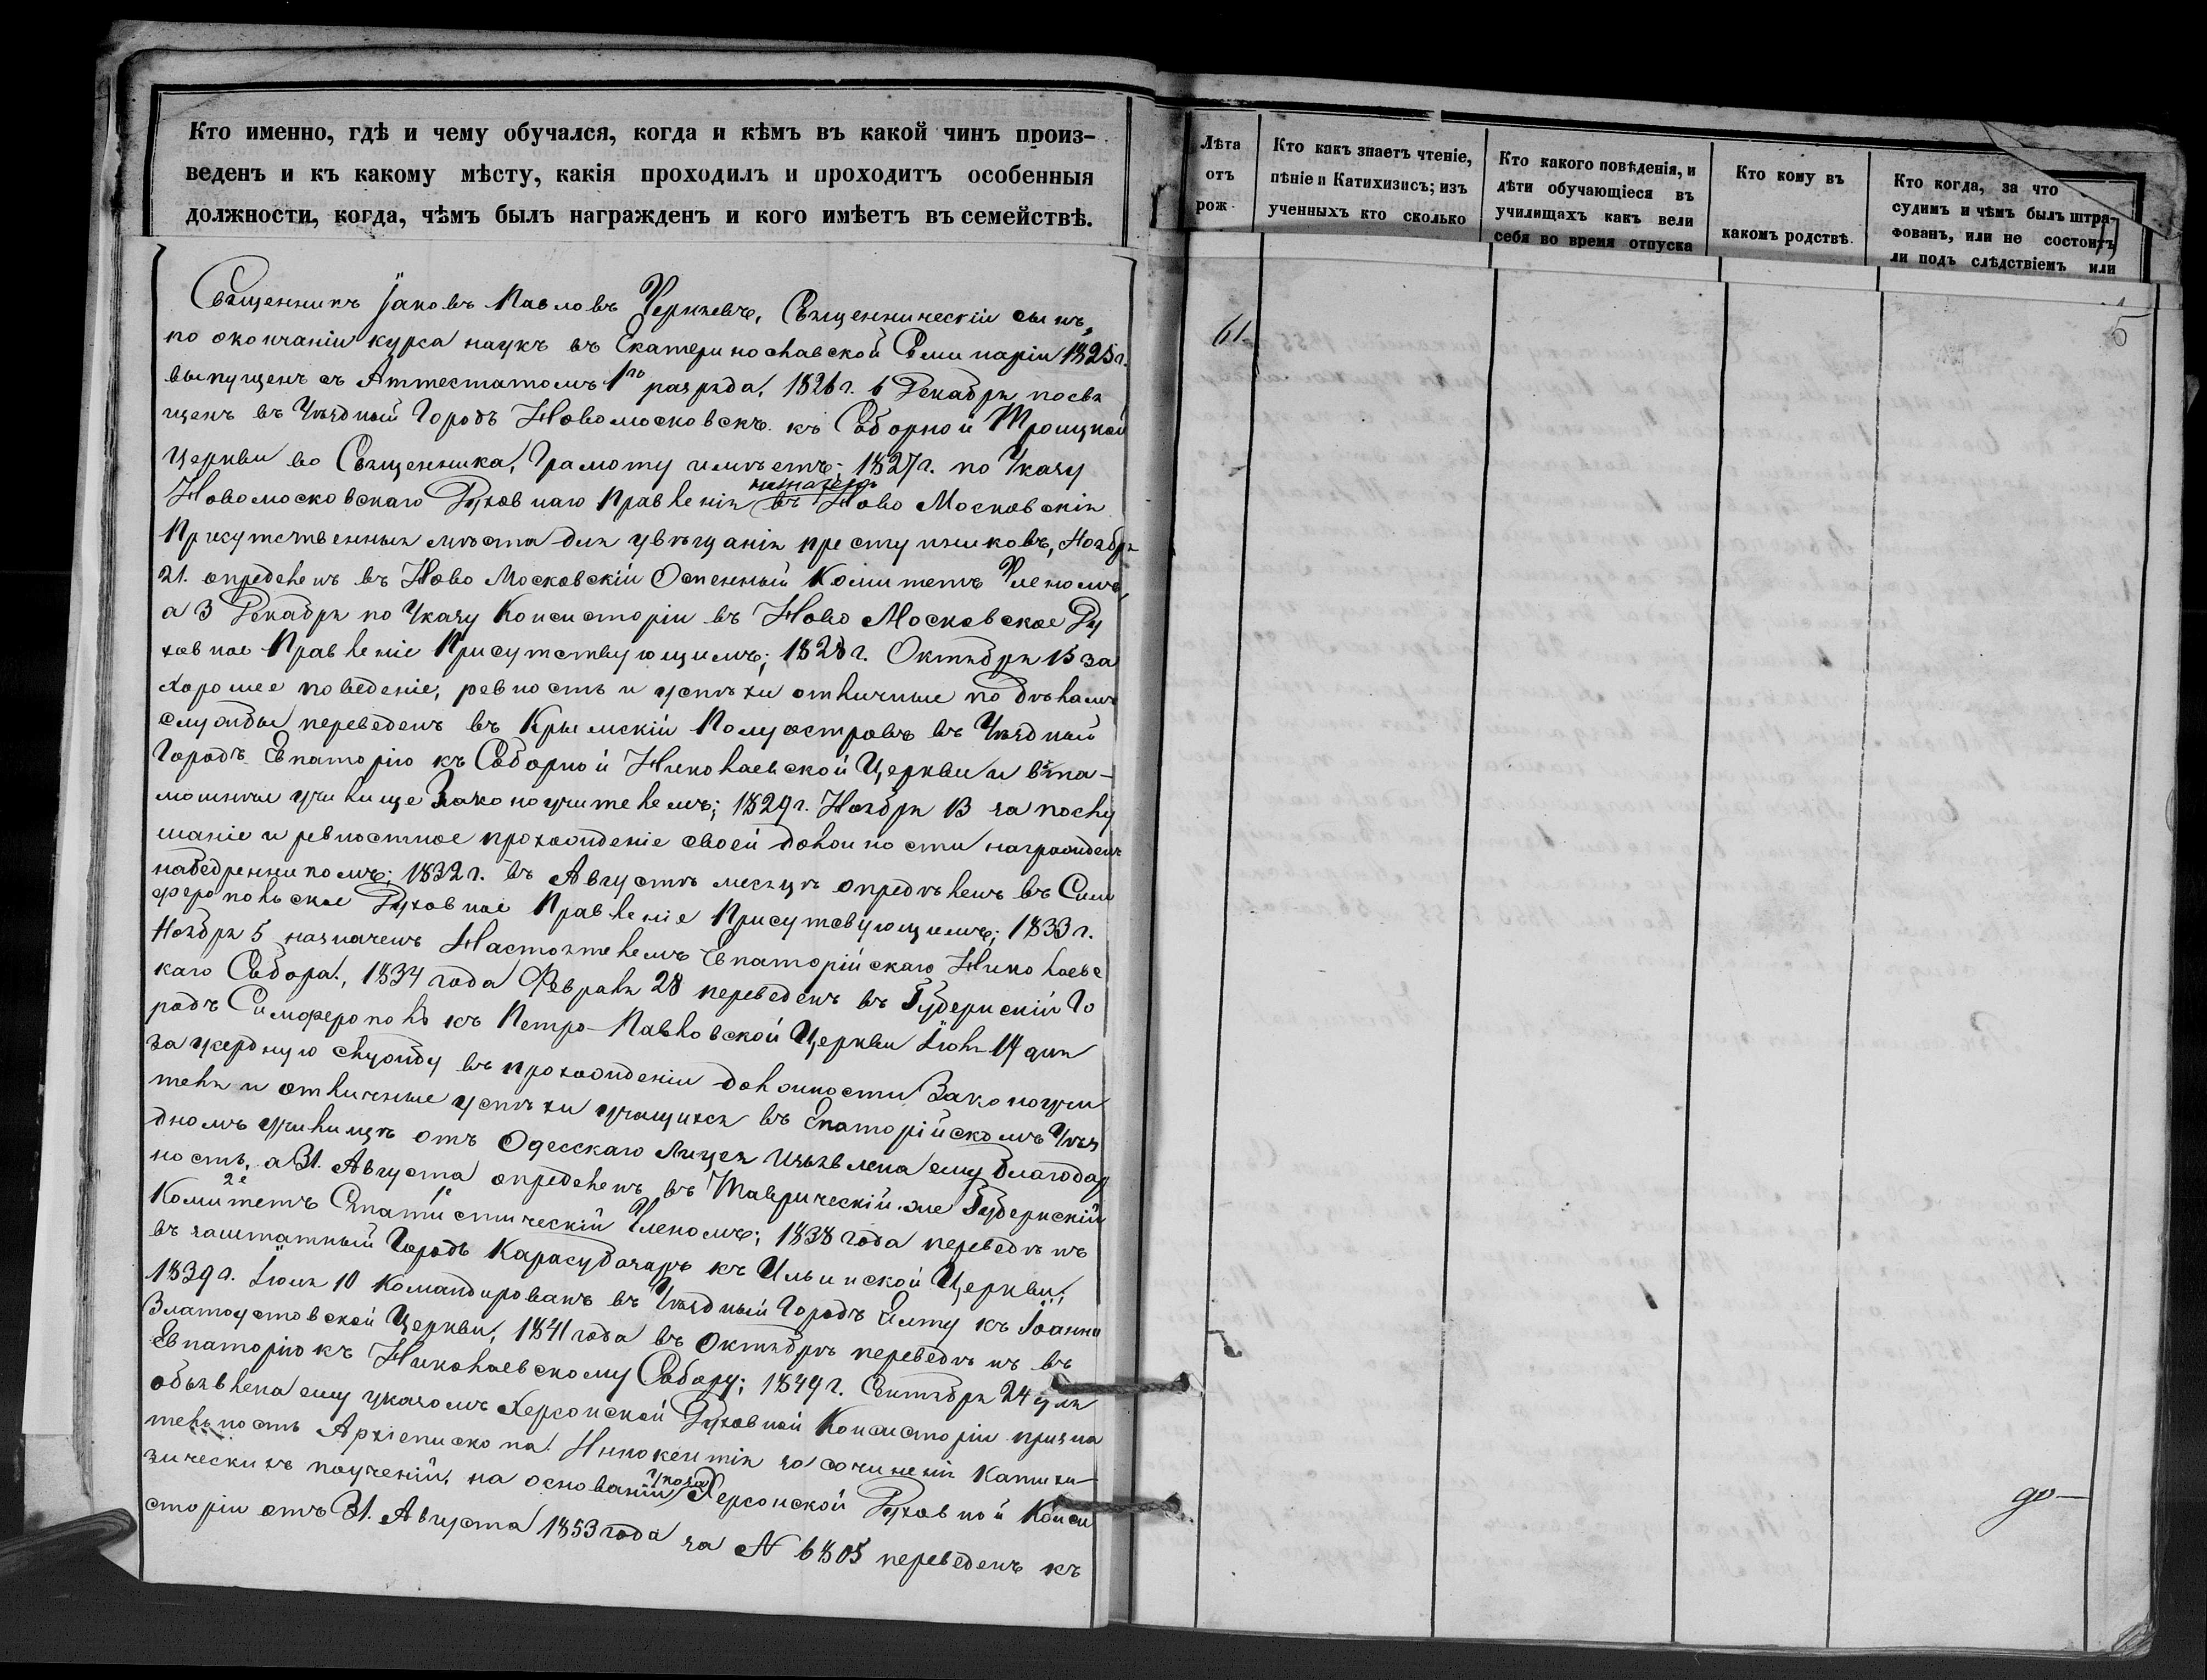 Кто именно, гдѣ и чему обучался, когда и кѣмъ въ какой чинъ произ-
веденъ и къ какому мѣсту, какія проходилъ и проходитъ особенныя
должности, когда, чѣмъ былъ награжденъ и кого имѣетъ въ семействѣ.
Священникъ Іаковъ Павловъ Чернявъ, Священническій сынъ,
по окончаніи курса наукъ въ Екатеринославской Семинаріи 1825 г.
выпущенъ съ Аттестатомъ 1го разряда, 1826 г. 6 Декабря посвя
щенъ въ Уѣздный Городъ Новомосковскъ къ Соборной Троицкой
Церкви во Священника, Грамоту имѣетъ; 1827 г. по Указу
Новомосковскаго Духовнаго Правленія въ Ново Московскія
Присутственныя мѣста для увѣщанія преступниковъ, Ноября
21. опредѣленъ въ Ново Московскій Оспенный Комитетъ Членомъ,
а 3 Декабря по Указу Консисторіи въ Ново Московское Ду
ховное Правленіе Присутствующимъ; 1828 г. Октября 15 за
хорошее поведеніе, ревность и успѣхи отличные по дѣламъ
службы переведенъ въ Крымскій Полуостровъ въ Уѣздный
Городъ Евпаторію къ Соборной Николаевской Церкви и въ та-
мошнее училище Законоучителемъ; 1829 г. Ноября 13 за послу
шаніе и ревностное прохожденіе своей должности награжденъ
набедренникомъ; 1832 г. въ Августѣ месяцѣ опредѣленъ въ Сим
феропольское Духовное Правленіе Присутсвующимъ; 1833 г.
Ноября 5 назначенъ Настоятелемъ Евпаторійскаго Николаевс
каго Собора; 1834 года Февраля 28 переведенъ въ Губернскій Го
родъ Симферополь къ Петро-Павловской Церкви Іюля 14 дня
за усердную службу въ прохожденіи должности Законоучи
теля и отличные успѣхи учащихся въ Епаторійскомъ Уѣз
дномъ училищѣ отъ Одесскаго Лицея Изъявлена ему благодар
ность, а 31. Августа опредѣленъ въ Таврическій же Губернскій
2е 1е
Комитетъ Статистическій Членомъ; 1838 года переведѣнъ
въ заштатный Городъ Карасубазаръ къ Ильинской Церкви;
1839 г. Іюля 10 Командированъ въ Уѣздный Городъ Ялту къ Іоанно
Златоустовской Церкви, 1841 года въ Октябрѣ переведѣнъ въ
Евпаторію къ Николаевскому Собору; 1849 г. Сентября 24 дня
объявлена ему указомъ Херсонской Духовной Консисторіи призна
тельность Архіепископа Иннокентія за сочиненія Катихи-
зическихъ поученій, на основаніи указа Херсонской Духовной Конси
сторіи отъ 31. Августа 1853 года за N 6805 переведенъ къ
Лѣта
отъ
рож
Кто какъ знаетъ чтеніе,
пѣніе и Катихизисъ; изъ
ученныхъ кто сколько
Кто какого поведенія, и
дѣти обучающіеся въ
училищахъ какъ вели
себя во время отпуска
Кто кому въ
какомъ родствѣ.
Кто когда, за что
судимъ и чѣмъ былъ штра-
фованъ, или не состоитъ
ли подъ слѣдствіемъ или
61.
5